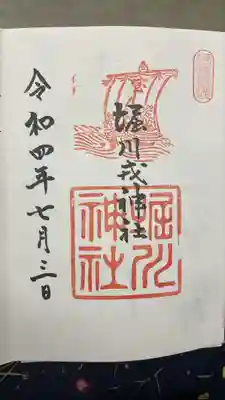 堀川戎神社
令和四年七月三日
堀川
神社